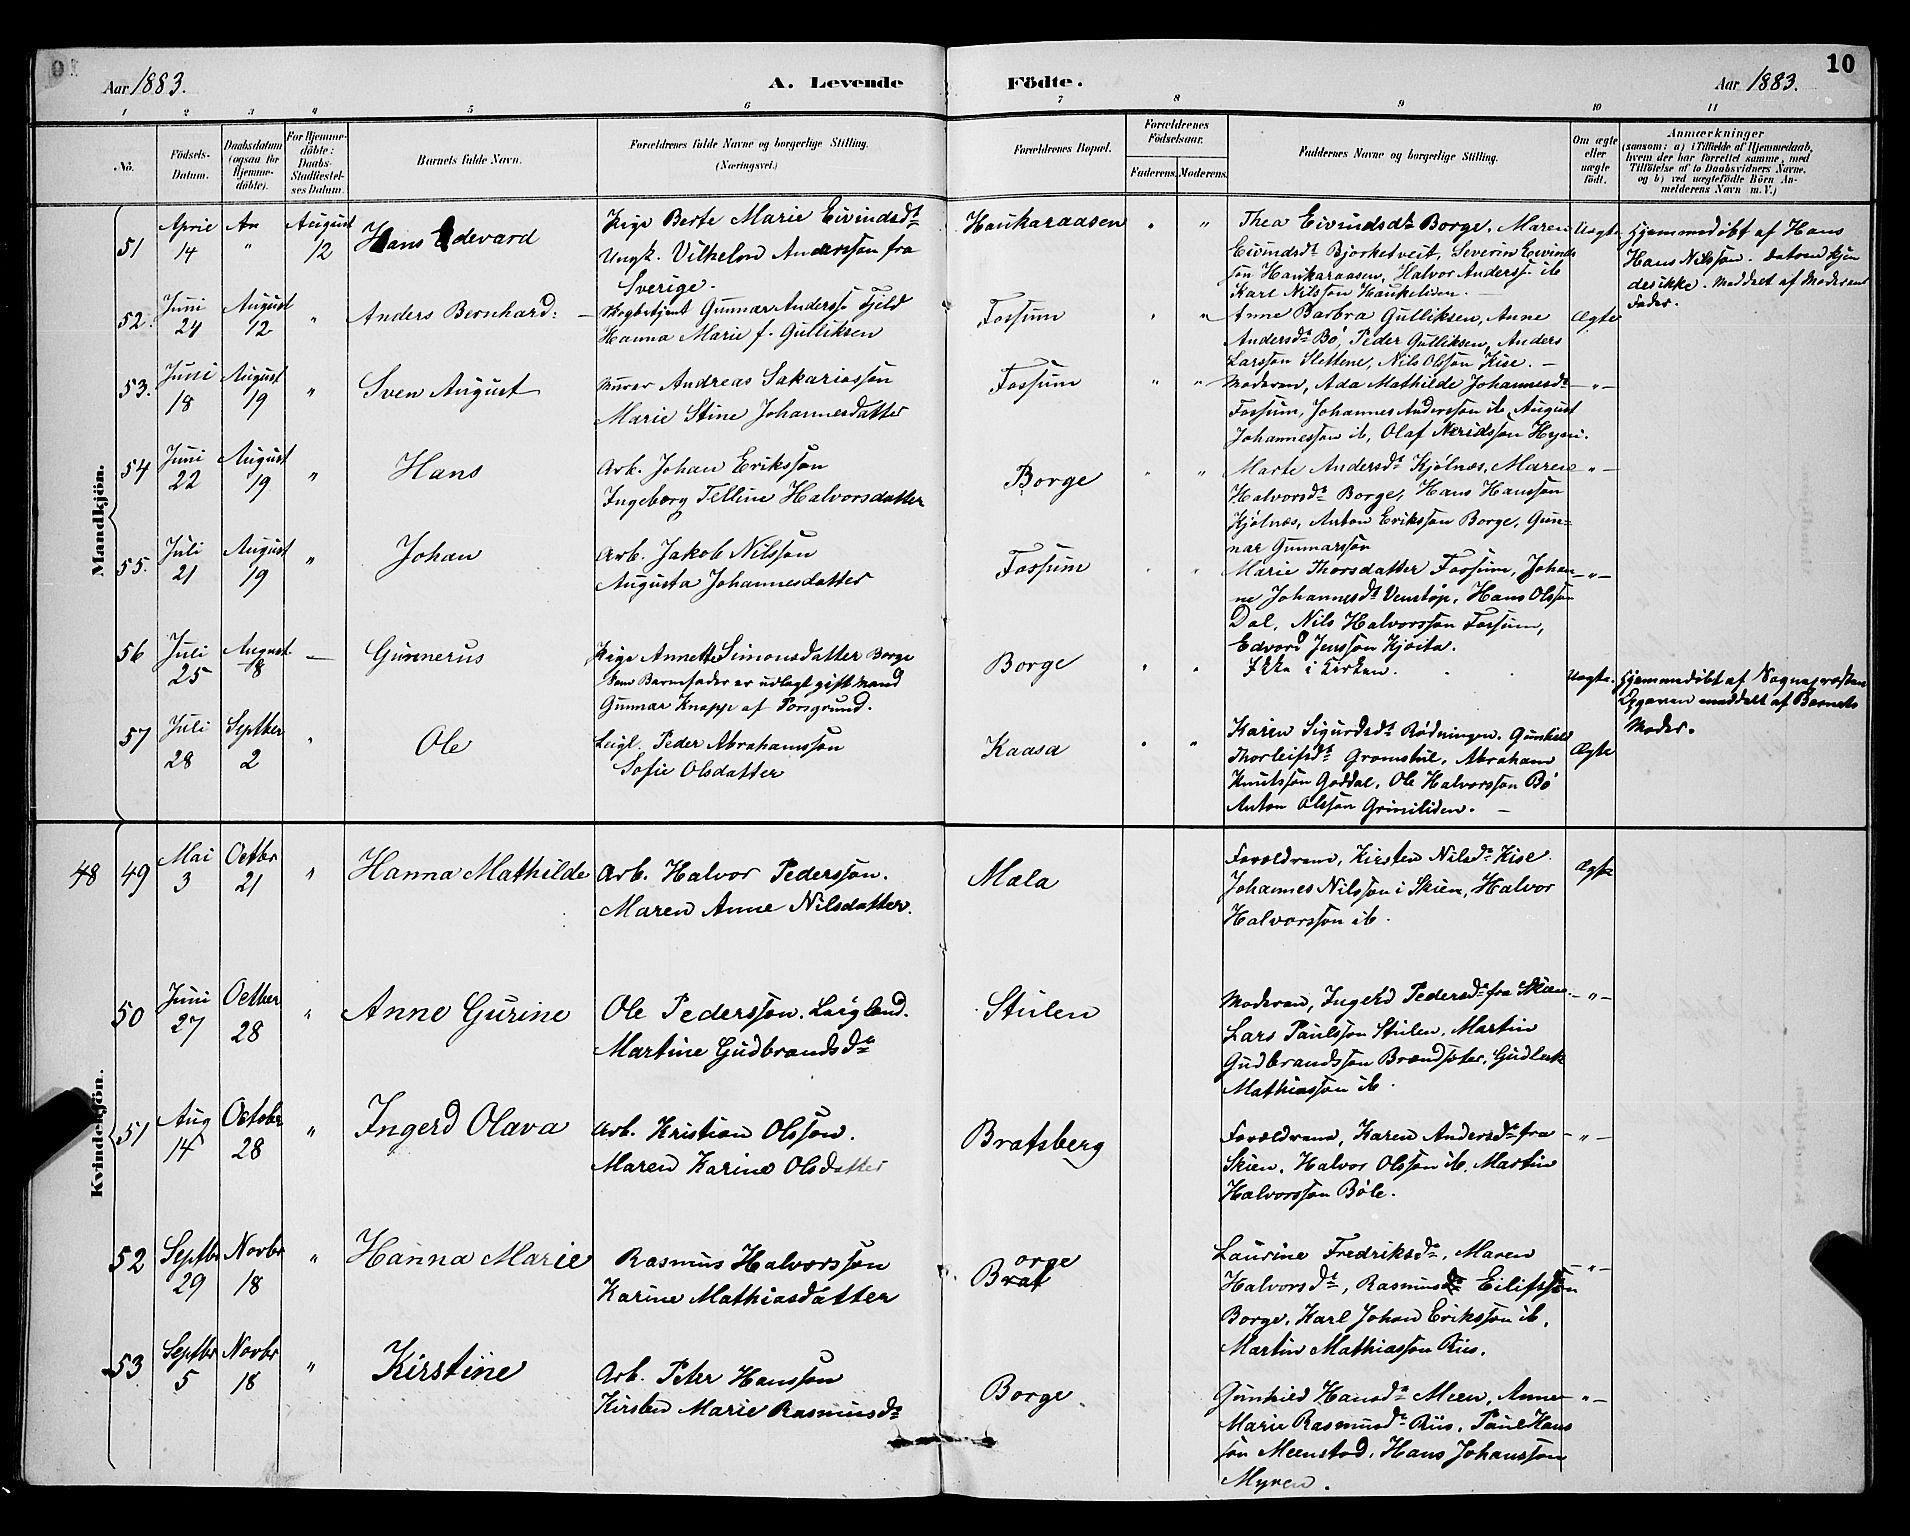 10
Aar 1883.
A. Levende
Födte.
Aar 1883.
1 2 3 4 5 6 7 8 9 10 11
No.
Födsels-
Datum.
Daabsdatum
(ogsaa for
Hjemme-
döbte).
For Hjemme-
döbte:
Daabs-
Stadfæstel-
ses Datum.
Barnets fulde Navn.
Forældrenes fulde Navne og borgerlige Stilling.
(Næringsvei.)
Forældrenes Bopæl.
Forældrenes
Födselsaar.
Faderens. Moderens.
Faddernes Navne og borgerlige Stilling.
Om ægte
eller
uægte
födt.
Anmærkninger
(saasom: a) i Tilfælde af Hjemmedaab,
hvem der har forrettet samme, med
Tilföielse af to Daabsvidners Navne.
og b) ved uægtefödte Börn An-
melderens Navn m. V.)
Mandkjön.
51
April
14
"
August
12
Hans Edevard
Pige Berte Marie Eivindsdt
Ungk. Vilhelm Andersson fra
Sverige.
Haukaraasen
" "
Thea Eivindsdt Borge, Maren
Eivindsdt Bjorketveit, Severin Eivinds
søn Haukaraasen, Halvor Anderss. ib
Karl Nilsson Haukeliden. —
Uegte
Hjemmedøbt af Hans
Hans Nilsson. Datoen kjen
des ikke. Meddelt af Moderens
Fader.
52.
Juni
24
August
12
"
Anders Bernhard. —
Skogbetjent Gunnar Anderss. Fjeld
Hanna Marie f. Gulliksen
Fossum
" "
Anne Barbra Gulliksen, Anne
Andersdt Bø, Peder Gulliksen, Anders
Larsson Slettene, Nils Olsson Kise. —
Ægte
53.
Juni
18
August
19
"
Sven August
Murer Andreas Sakariasson
Marie Stine Johannesdatter
Fossum
" "
Moderen, Ada Mathilde Johannesdt
Fossum, Johannes Andersson ib, August
Johannesson ib, Olaf Neridsson Hyni.
—"—
54
Juni
22
August
19
"
Hans
Arb. Johan Eriksson
Ingeborg Telline Halvorsdatter
Borge
" "
Marte Andersdt Kjølnæs, Maren
Halvorsdt Borge, Hans Hansson
Kjølnæs, Anton Eriksson Borge, Gun-
nar Gunnarsson
"—
55.
Juli
21
August
19
"
Johan
Arb. Jakob Nilsson
Augusta Johannesdatter
Fossum
" "
Marie Thorsdatter Fossum, Johan-
ne Johannesdt Venstøp, Hans Olsson
Dal, Nils Halvorsson Fossum,
Edvard Jensson Kjoita.
—"—
56
Juli
25
August
18
—
Gunnerus
Pige Annette Simonsdatter Borge
Som Barnefader er udlagt gift Mand
Gunnar Knapp af Porsgrund.
Borge
" "
Ikke i Kirken.
Uegte.
Hjemmedøbt af Sognepresten
Opgaven meddelt af Barnets
Moder.
57
Juli
28
Septber
2
"
Ole
Leigl. Peder Abrahamsson
Sofie Olsdatter
Kaasa
" "
Karen Sigurdsdt Rødningen, Gunhild
Thorleifsdt Gromstul, Abraham
Knutsson Goddal, Ole Halvorsson Bø
Anton Olsson Griniliden. —
Ægte
Kvindekjön.
48 49
Mai
3
Octbr
21
"
Hanna Mathilde
Arb. Halvor Pedersson.
Maren Anne Nilsdatter.
Mæla
Forældrene, Kirsten Nilsdt Kise
Johannes Nilsson i Skien, Halvor
Halvorsson ib.
Ægte
50
Juni
27
Octber
28
"
Anne Gurine
Ole Pedersson. Leiglend.
Martine Gudbrandsdt
Stulen
Moderen, Ingerd Pedersdt fra Skien
Lars Paulsson Stulen, Martin
Gudbrandsson Brændsæter, Gudleik
Mathiasson ib.
—"—
51
Aug
14
October
28
"
Ingerd Olava
Arb. Kristian Olsson.
Maren Karine Olsdatter
Bratsberg
Forældrene, Karen Andersdt fra
Skien, Halvor Olsson ib. Martin
Halvorsson Bøle.
—"—
52
Septbr
29
Novbr
18
"
Hanna Marie
Rasmus Halvorsson
Karine Mathiasdatter
orge
Brat
Laurine Fredriksdt, Maren
Halvorsdt, Rasmus Eilifsson
Borge, Karl Johan Eriksson ib,
Martin Mathiasson Riis.
—"—
53
Septbr
5
Novbr
18
"
Kirstine
Arb. Peter Hansson
Kirsten Marie Rasmusdt
Borge
Gunhild Hansdt Meen, Anne
Marie Rasmusdt Riis, Paul Hans
søn Meenstad, Hans Johansson
Myren.
—"—